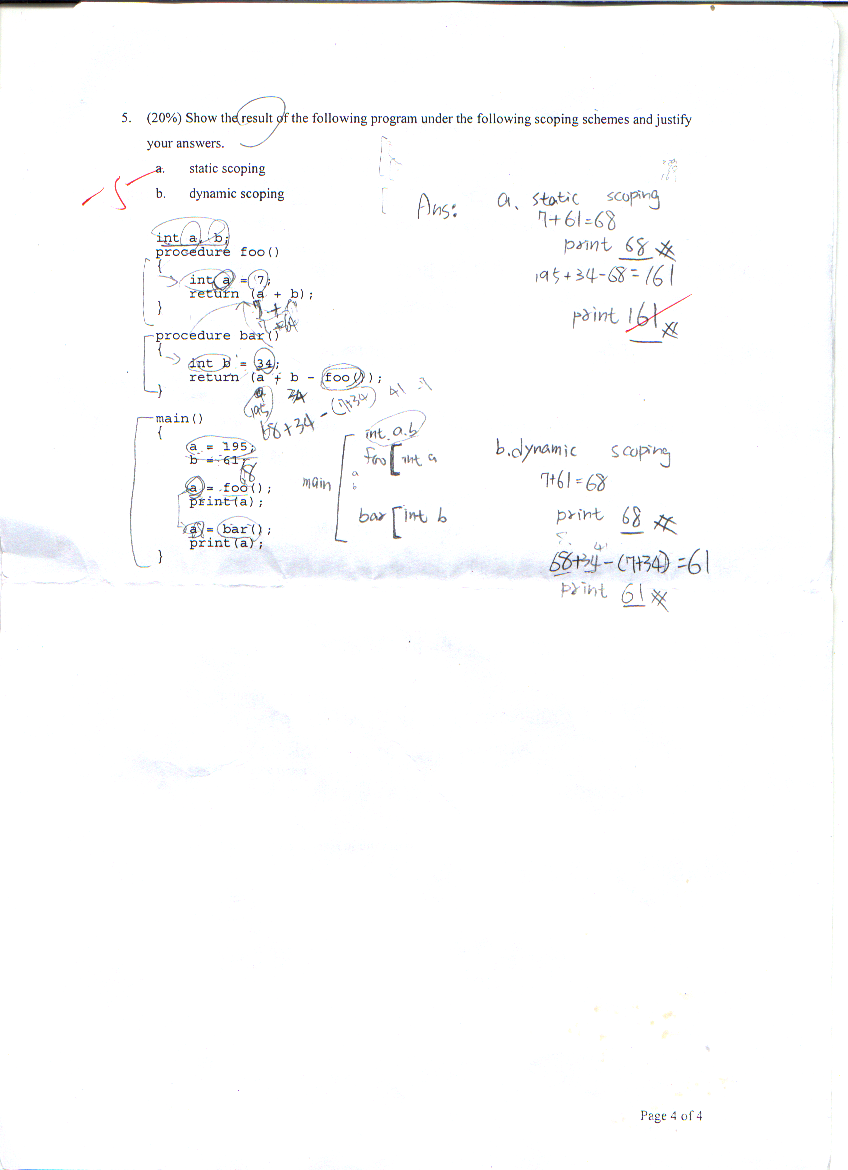 5. (20%) Show the result of the following program under the following scoping schemes and justify
your answers.
a. static scoping
b. dynamic scoping
-5
int a, b;
procedure foo()
{
int a = 7;
return (a + b);
}
procedure bar()
{
int b = 34;
return (a + b - foo());
}
main()
{
a = 195;
b = 61;
a = foo();
print(a);
a = bar();
print(a);
}
195 34
68+34-(7+34) 41
68
int a.b
foo [ int a
main
a
b
bar [ int b
Ans: a. static scoping
7+61=68
print 68
195+34-68=161
print 161
b. dynamic scoping
7+61=68
print 68
68+34-(7+34)=61
print 61
Page 4 of 4